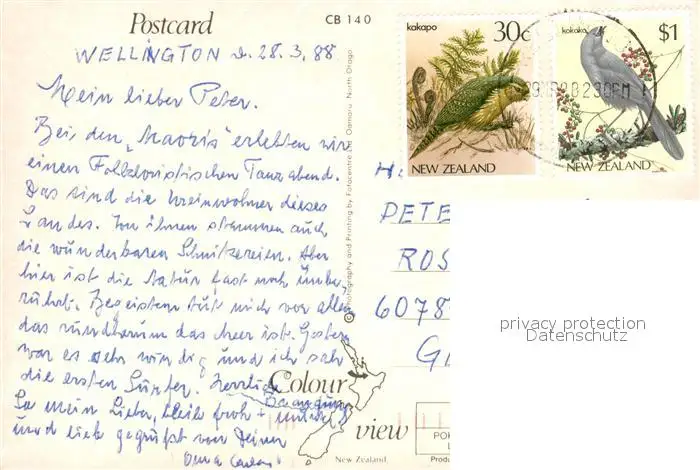 Postcard
CB 140
WELLINGTON d. 28.3.88
Mein lieber Peter.
Bei den "Maoris" erlebten wir
einen Folkloristischen Tanzabend.
Das sind die Ureinwohner dieses
Landes. Von ihnen stammen auch
die wunderbaren Schnitzereien. Aber
hier ist die Natur fast noch unbe-
rührt. Begeistern tut mich vor allem
das rundherum das Meer ist. Gestern
war es sehr windig und ich sah
die ersten Surfer. Herrliche
So mein Lieber, bleib froh +
und lieb gegrüßt von Deiner
Oma
Photography and Printing by Fotocentre Ltd Oamaru, North Otago.
kakapo
30c
NEW ZEALAND
kokako
$1
NEW ZEALAND
230PM
PETE
ROS
6078
G
privacy protection
Datenschutz
Colour
view
New Zealand
PO
L
Produ